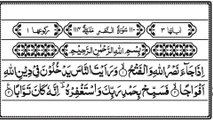 اٰیاتها ۳ ۱۱۰ سُوْرَةُ النَّصْرِ ركوعها ۱
بِسْمِ اللّٰهِ الرَّحْمٰنِ الرَّحِيْمِ
اِذَا جَآءَ نَصْرُ اللّٰهِ وَالْفَتْحُ ۙ وَرَاَيْتَ النَّاسَ يَدْخُلُوْنَ فِيْ دِيْنِ اللّٰهِ
اَفْوَاجًا ۙ فَسَبِّحْ بِحَمْدِ رَبِّكَ وَاسْتَغْفِرْهُ ؕ اِنَّهٗ كَانَ تَوَّابًا